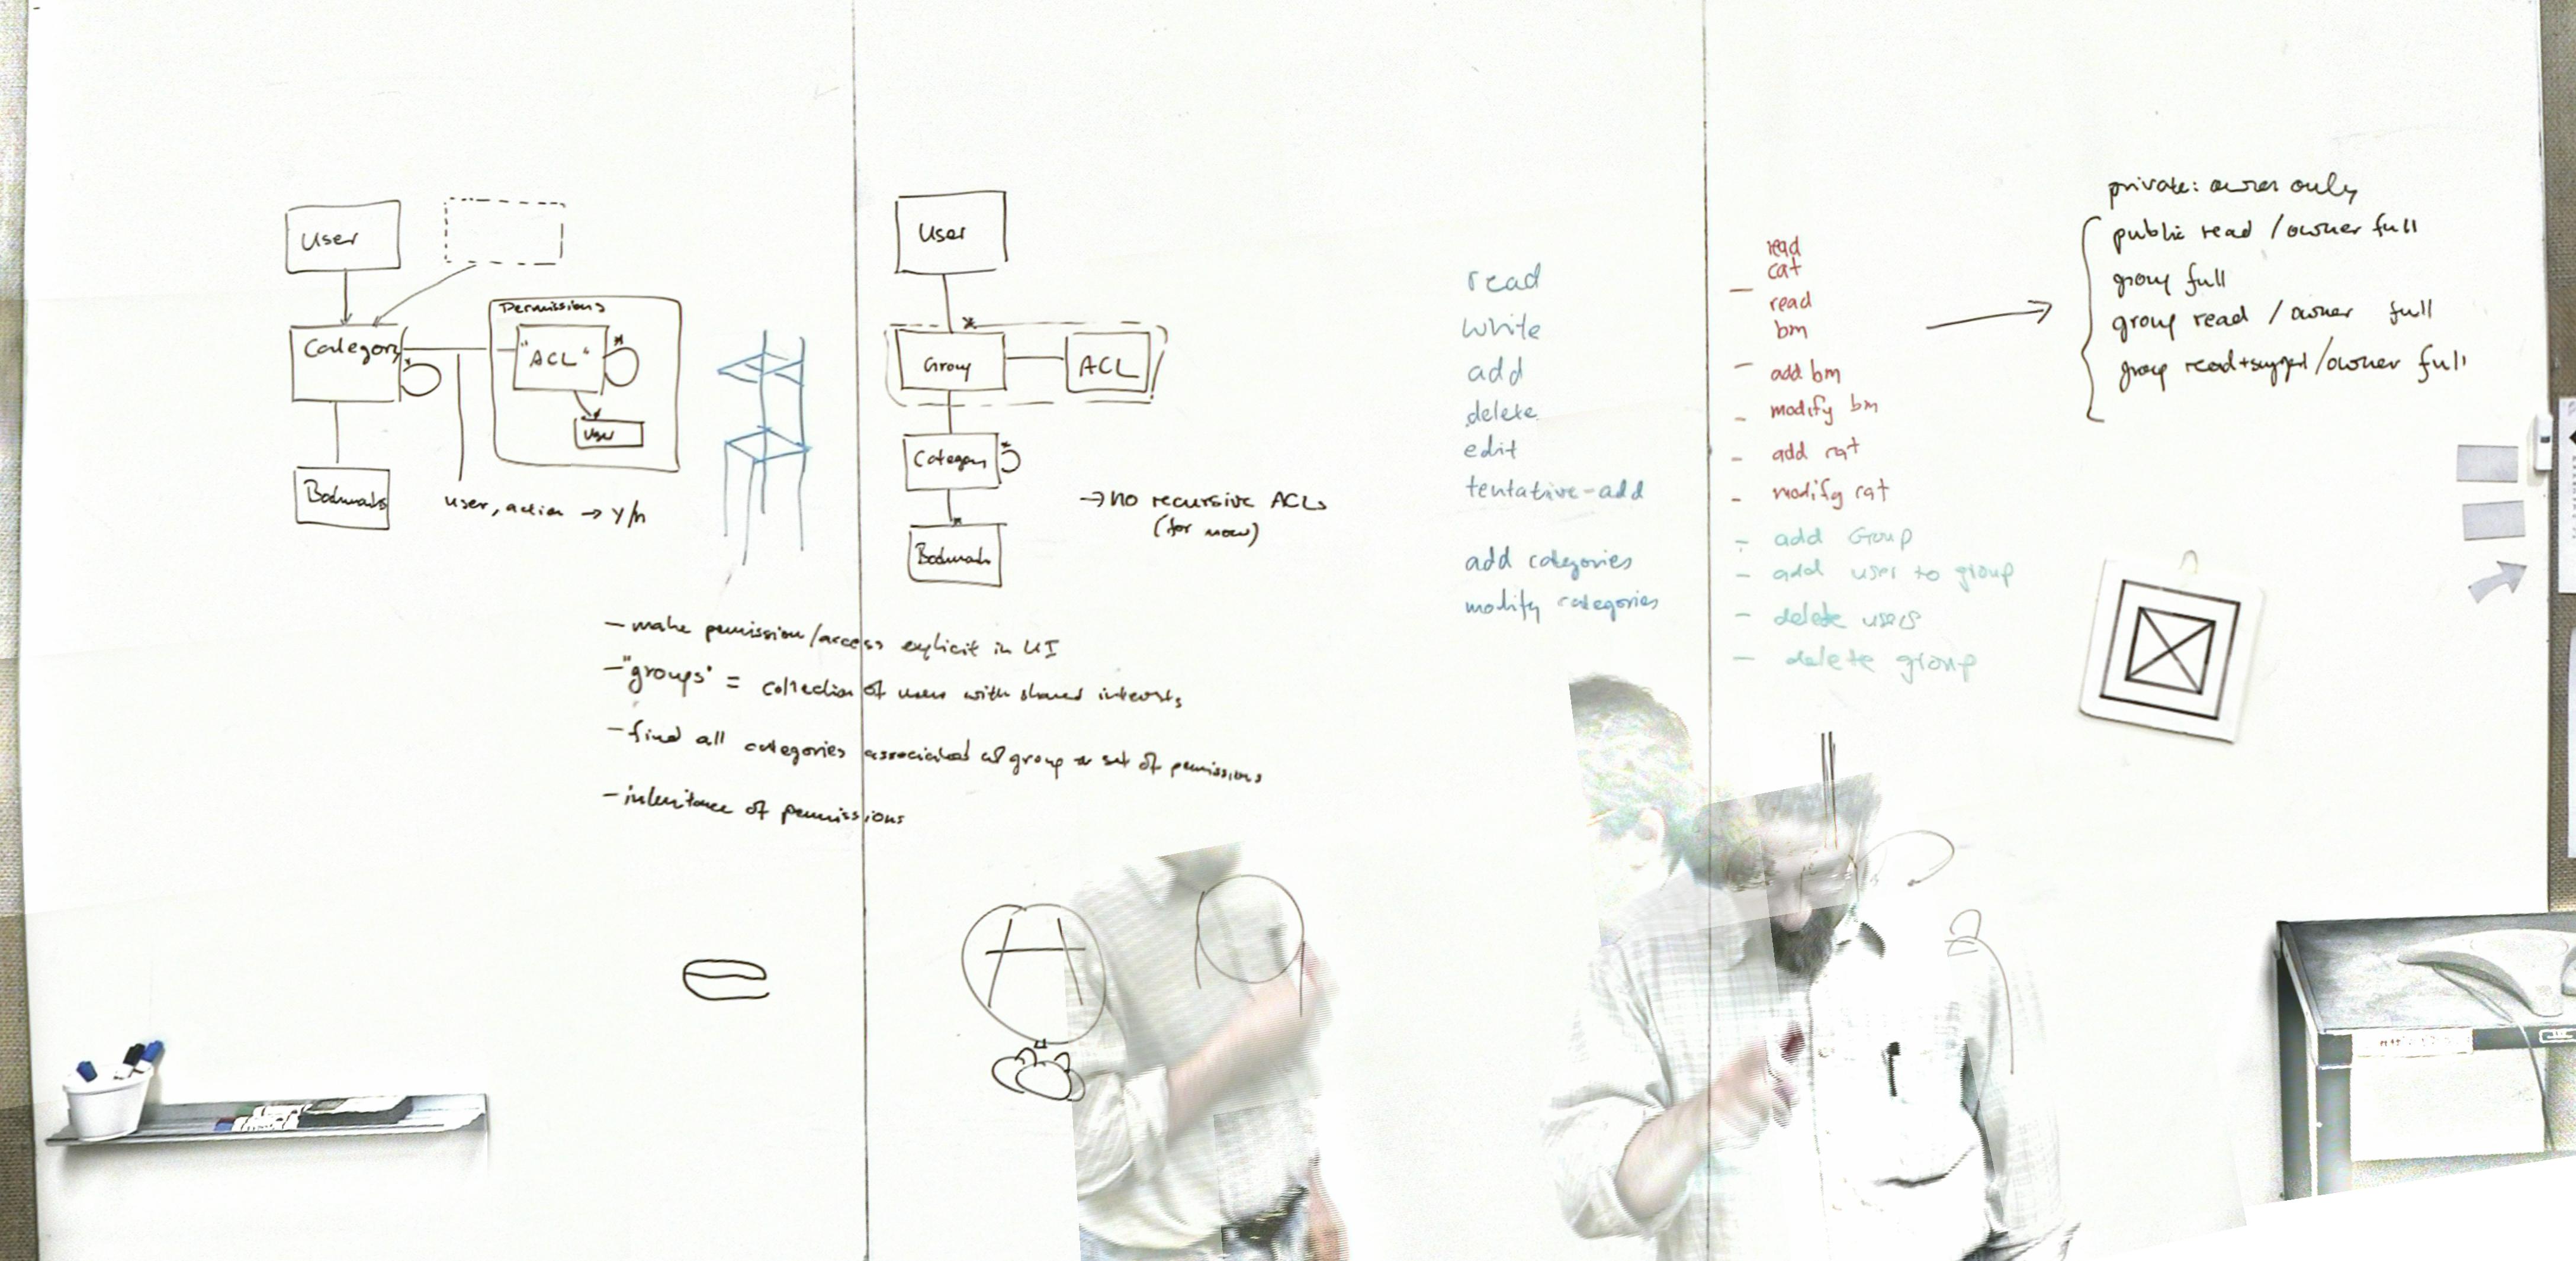 User
Category
Bookmarks
Permissions
"ACL"
User
user, action → y/n
User
*
Group
ACL
Category
*
*
Bookmarks
→ no recursive ACLs
(for now)
- make permission/access explicit in UI
- "groups" = collection of users with shared interests
- find all categories associated w/ group or set of permissions
- inheritance of permissions
read
write
add
delete
edit
tentative-add
add categories
modify categories
read
cat
- read
bm
- add bm
- modify bm
- add cat
- modify cat
- add Group
- add user to group
- delete users
- delete group
private: owner only
public read / owner full
group full
group read / owner full
group read+suggest/owner full